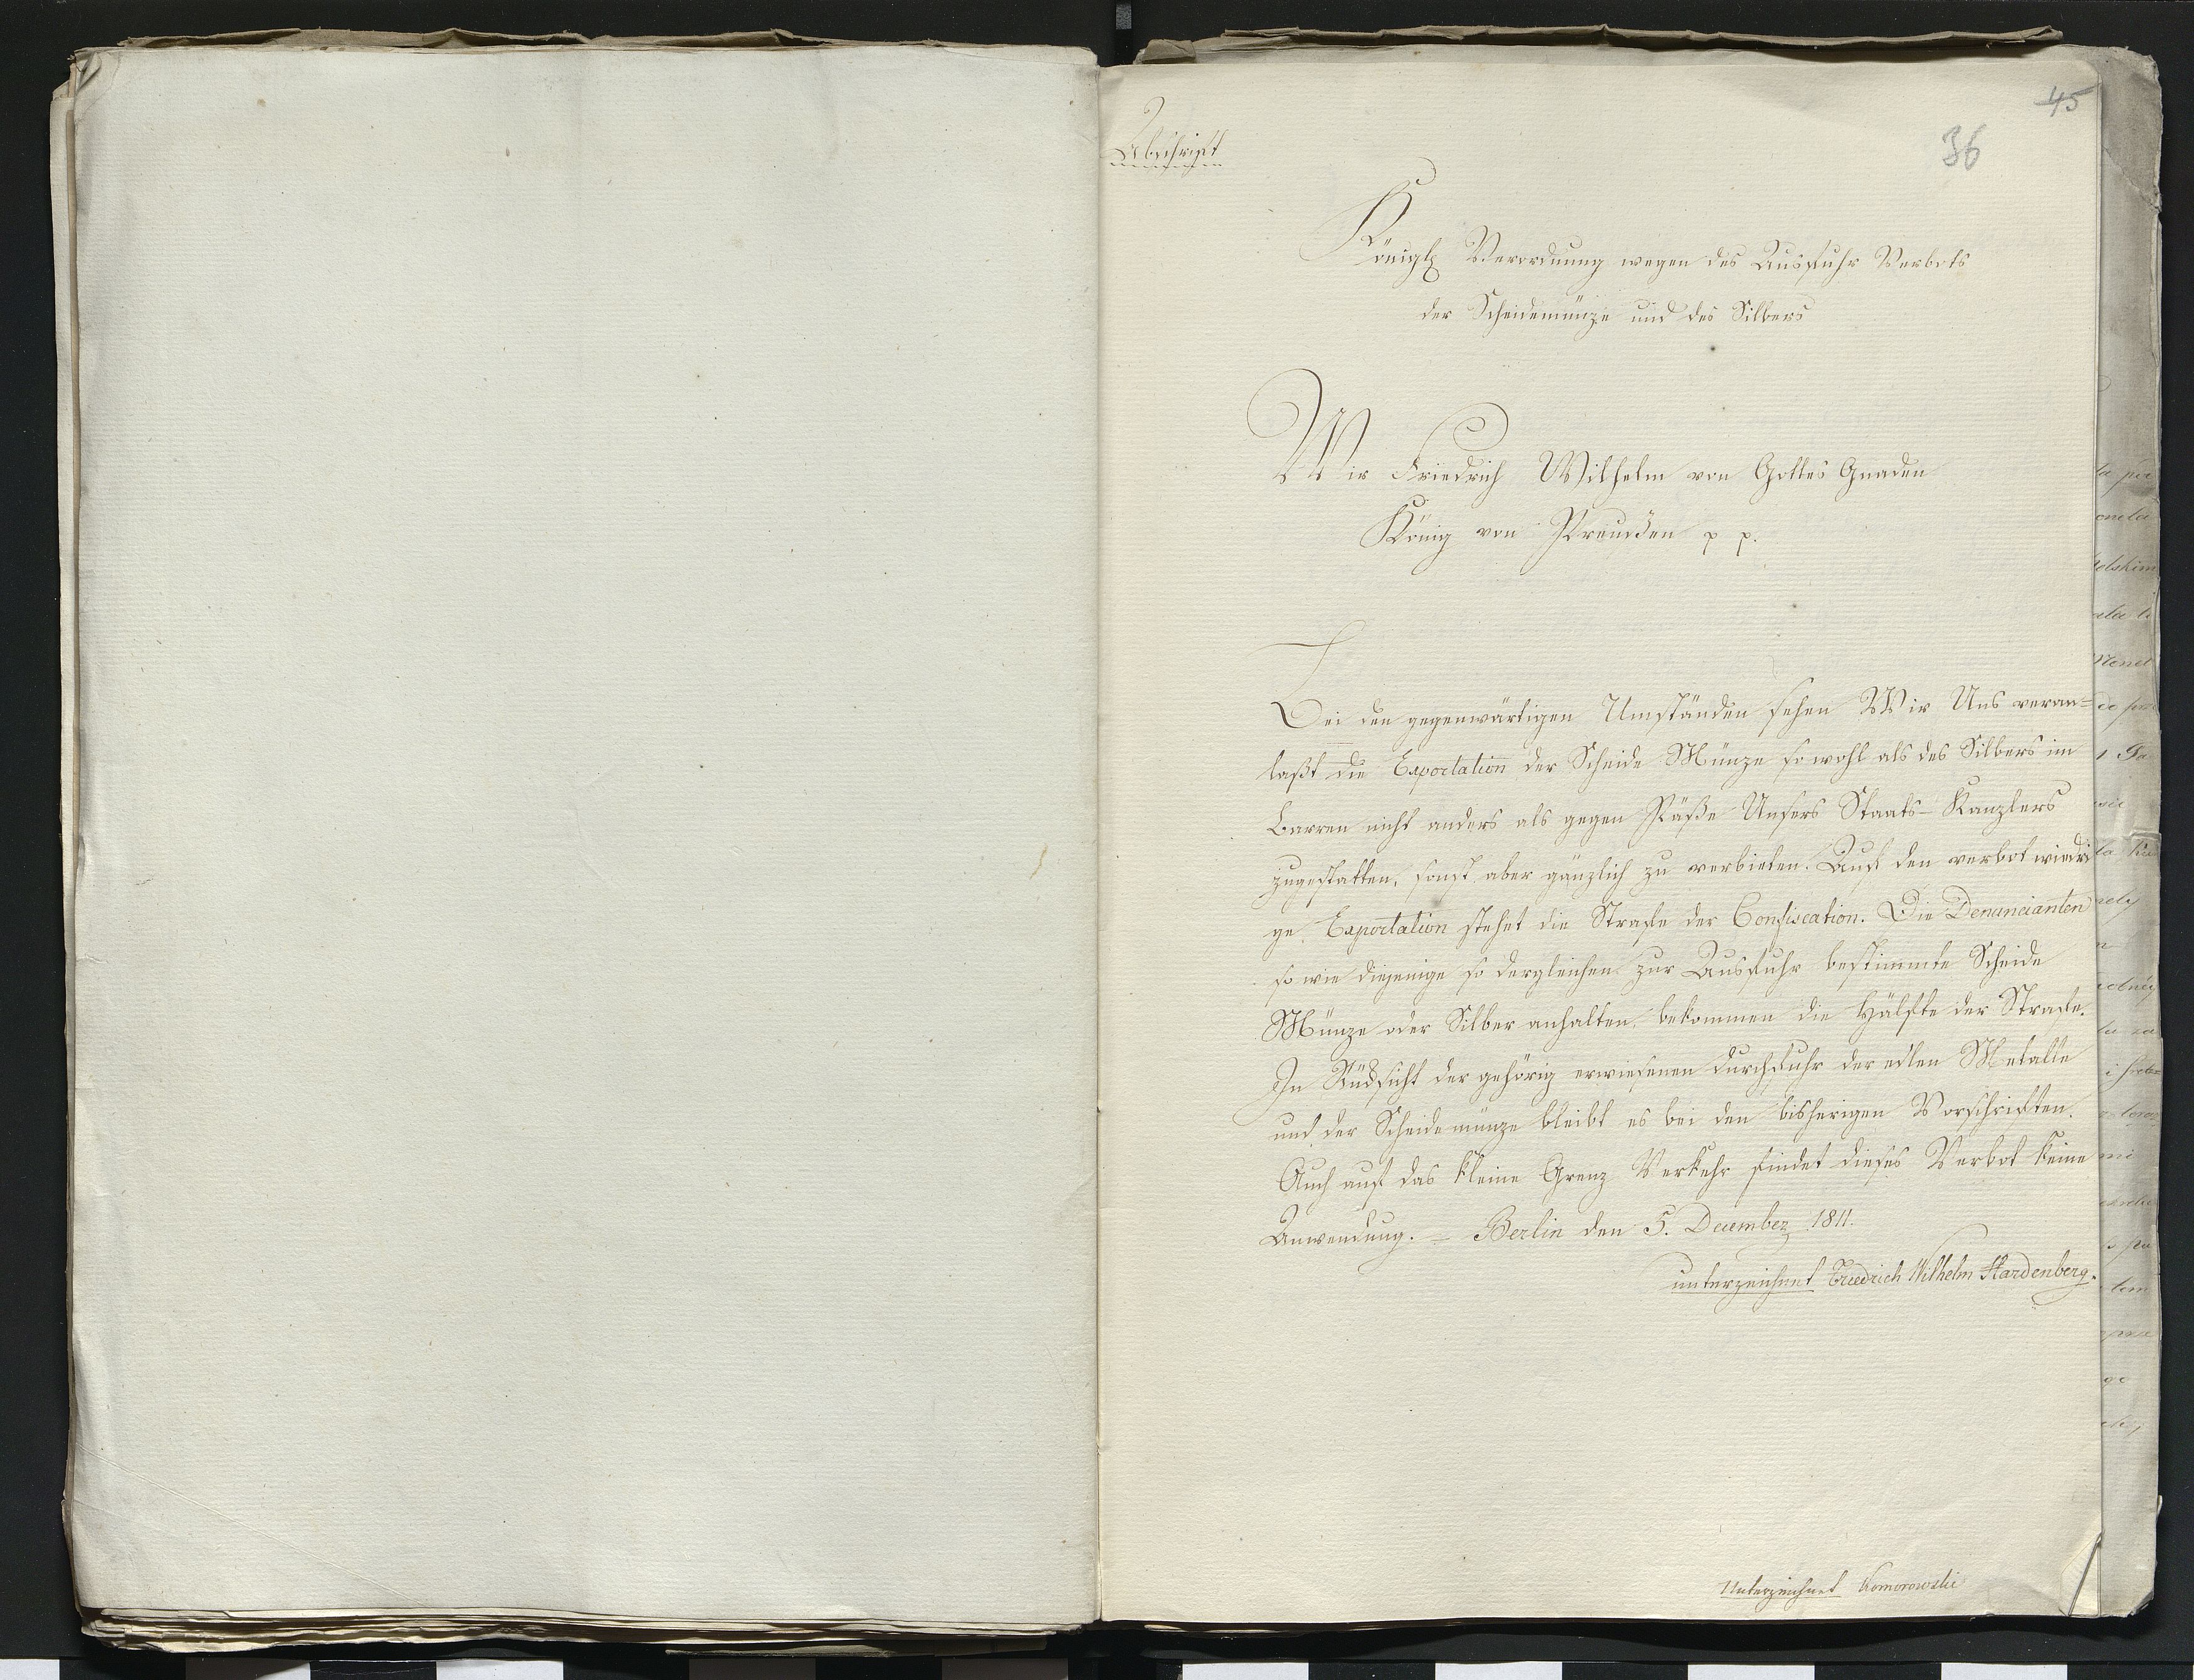 45
36
Abschrift
Königl Verordnung wegen des Ausfuhr Verbots
der Scheidemünze und des Silbers
Wir Friedrich Wilhelm von Gottes Gnaden
König von Preußen p p.
Bei den gegenwärtigen Umständen sehen Wir Uns veran=
laßt die Exportation der Scheide Münze so wohl als des Silbers im
Barren nicht anders als gegen Päße Unsers Staats-Kanzlers
zugestatten, sonst aber gänzlich zu verbieten. Auf den verbot wiedri
ge Exportation stehet die Strafe der Confiscation. Die Denuncianten
so wie diejenige so dergleichen zur Ausfuhr bestimmte Scheide
Münze oder Silber anhalten, bekommen die Hälfte der Strafe.
In Rüksicht der gehörig erwiesenen Durchfuhr der edlen Metalle
und der Scheidemünze bleibt es bei den bisherigen Vorschriften.
Auch auf das kleine Grenz Verkehr findet dieses Verbot keine
Anwendung. – Berlin den 5. December 1811.
unterzeichnet Friedrich Wilhelm Hardenberg.
Unterzeichnet Komorowski